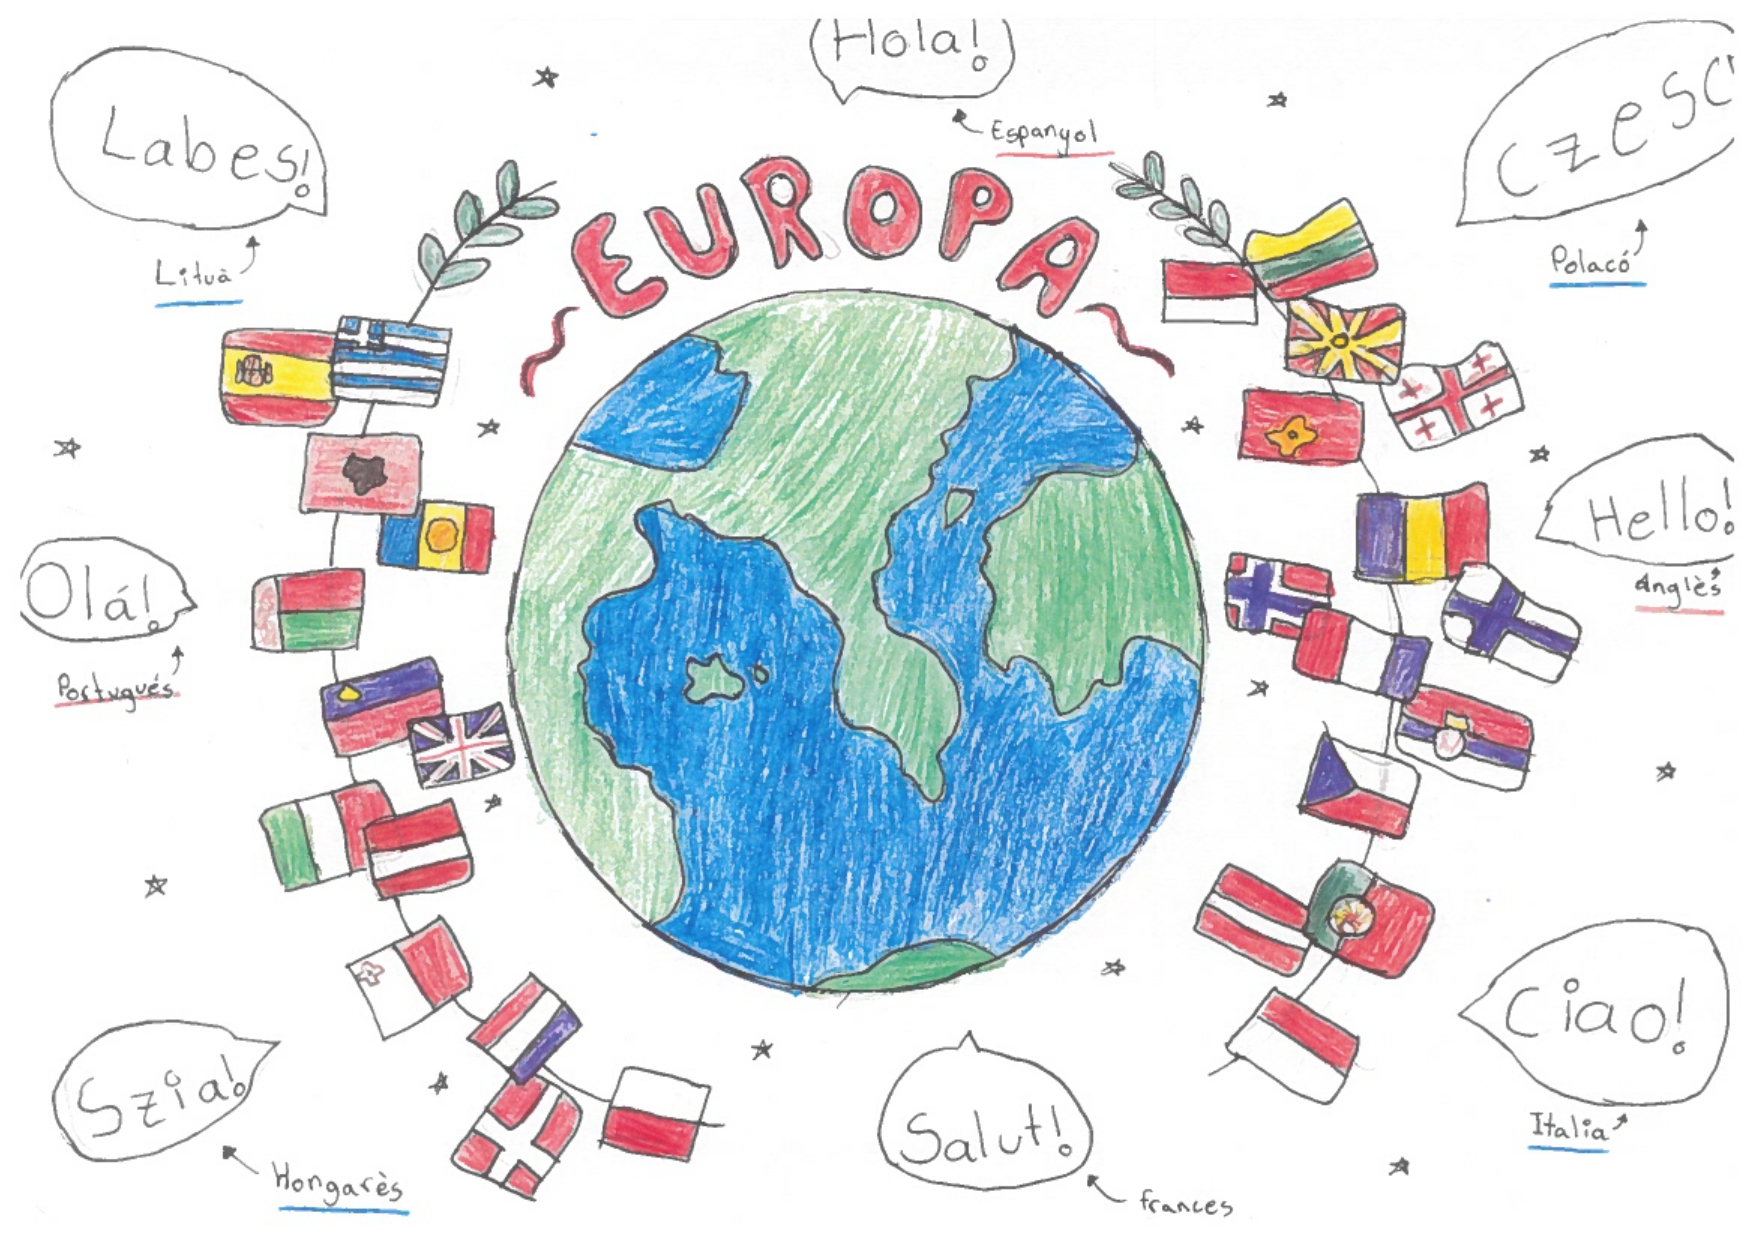 Hola!
Espanyol
Labes!
Lituà
Czesc'
Polacó
EUROPA
Hello!
Anglès
Olá!
Portugués
Ciao!
Italia
Szia!
Hongarès
Salut!
frances